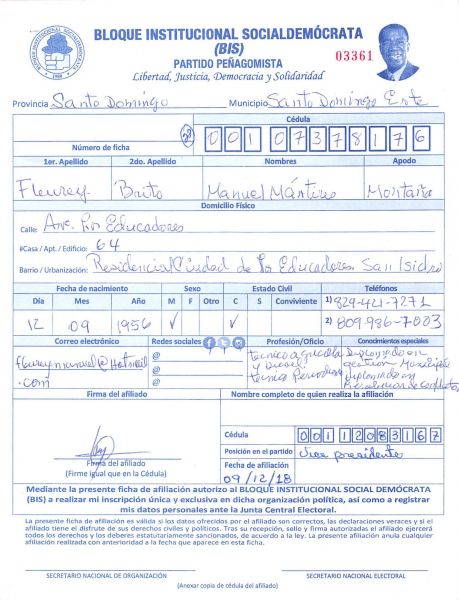 BLOQUE INSTITUCIONAL SOCIALDEMÓCRATA
(BIS)
PARTIDO PEÑAGOMISTA
Libertad, Justicia, Democracia y Solidaridad
03361
Provincia Santo Domingo Municipio Santo Domingo Este
Cédula
Número de ficha 22 001 0737817 6
1er. Apellido 2do. Apellido Nombres Apodo
Fleurey Brito Manuel Mártires Montaña
Domicilio Físico
Calle: Ave. Los Educadores
#Casa / Apt. / Edificio: 64
Barrio / Urbanización: Residencial Ciudad de Los Educadores San Isidro
Fecha de nacimiento Sexo Estado Civil Teléfonos
Día Mes Año M F Otro C S Conviviente 1) 829-421-7271
12 09 1956 ✓ ✓ 2) 809-986-7003
Correo electrónico Redes sociales Profesión/Oficio Conocimientos especiales
fleureymanuel@Hotmail
.com
@
@
@
Tecnico agricola
y Diesel
tecnico Periodista
Diplomado en
gestion Municipal
diplomado en
Firma del afiliado Nombre completo de quien realiza la afiliación
Cédula 001 1208316 7
Posición en el partido Vice presidente
Fecha de afiliación
09/12/18
Firma del afiliado
(Firme igual que en la Cédula)
Mediante la presente ficha de afiliación autorizo al BLOQUE INSTITUCIONAL SOCIAL DEMÓCRATA
(BIS) a realizar mi inscripción única y exclusiva en dicha organización política, así como a registrar
mis datos personales ante la Junta Central Electoral.
La presente ficha de afiliación es válida si los datos ofrecidos por el afiliado son correctos, las declaraciones veraces y si el afiliado
tiene el disfrute de sus derechos civiles y políticos. Tras su recepción, sello y firma autorizadas el afiliado ejercerá
todos los derechos y los deberes estatutariamente sancionados, de acuerdo a la ley. La presente afiliación anula cualquier
afiliación realizada con anterioridad a la fecha que aparece en esta ficha.
SECRETARIO NACIONAL DE ORGANIZACIÓN SECRETARIO NACIONAL ELECTORAL
(Anexar copia de cédula del afiliado)